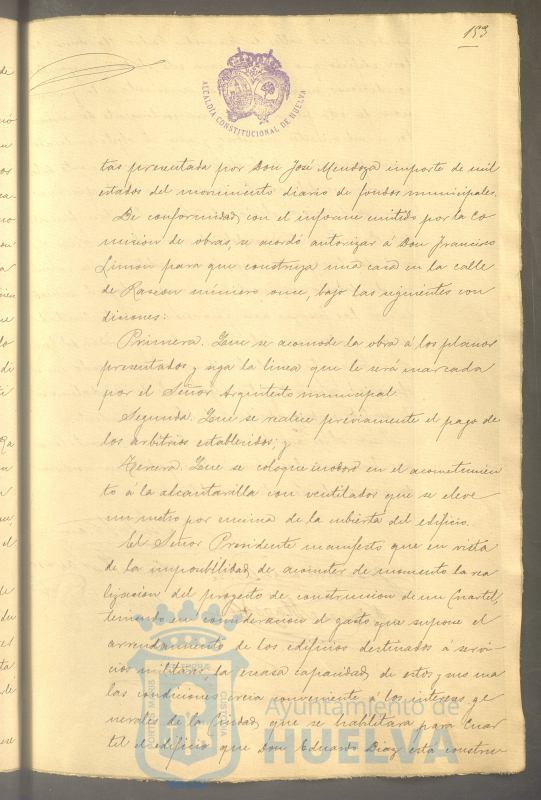 153
ALCALDÍA CONSTITUCIONAL DE HUELVA
tas presentada por Don José Mendoza importe de mil
estados del movimiento diario de fondos municipales.
De conformidad, con el informe emitido por la Co
mision de obras, se acordó autorizar á Don Francisco
Limon para que construya una casa en la calle
de Rascon número once, bajo las siguientes con
diciones:
Primera. Que se acomode la obra á los planos
presentados y siga la linea que le será marcada
por el Señor Arquitecto municipal.
Segunda. Que se realice préviamente el pago de
los arbitrios establecidos; y
Tercera. Que se coloque inodoro en el acometimien
to á la alcantarilla con ventilador que se eleve
un metro por encima de la cubierta del edificio.
El Señor Presidente manifestó que en vista
de la imposibilidad, de acometer de momento la rea
lizacion del proyecto de construccion de un Cuartel,
teniendo en consideracion el gasto que supone el
arrendamiento de los edificios destinados á servi-
cios militares, la escasa capacidad, de estos y sus ma
las condiciones, creia conveniente á los intereses ge
nerales de la Ciudad, que se habilitara para Cuar
tel el edificio que Don Eduardo Diaz está constru-
Ayuntamiento de
HUELVA